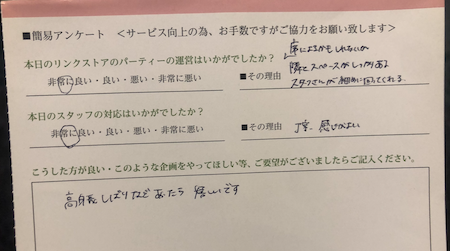 ■簡易アンケート <サービス向上の為、お手数ですがご協力をお願い致します>
本日のリンクストアのパーティーの運営はいかがでしたか?
非常に良い・良い・悪い・非常に悪い
■その理由
席によるかもしれないが
隣とスペースがしっかりある
スタッフさんが細めに回ってくれる。
本日のスタッフの対応はいかがでしたか?
非常に良い・良い・悪い・非常に悪い
■その理由 丁寧 感じがよい
こうした方が良い・このような企画をやってほしい等、ご要望がございましたらご記入ください。
高身長しばりなどあったら嬉しいです